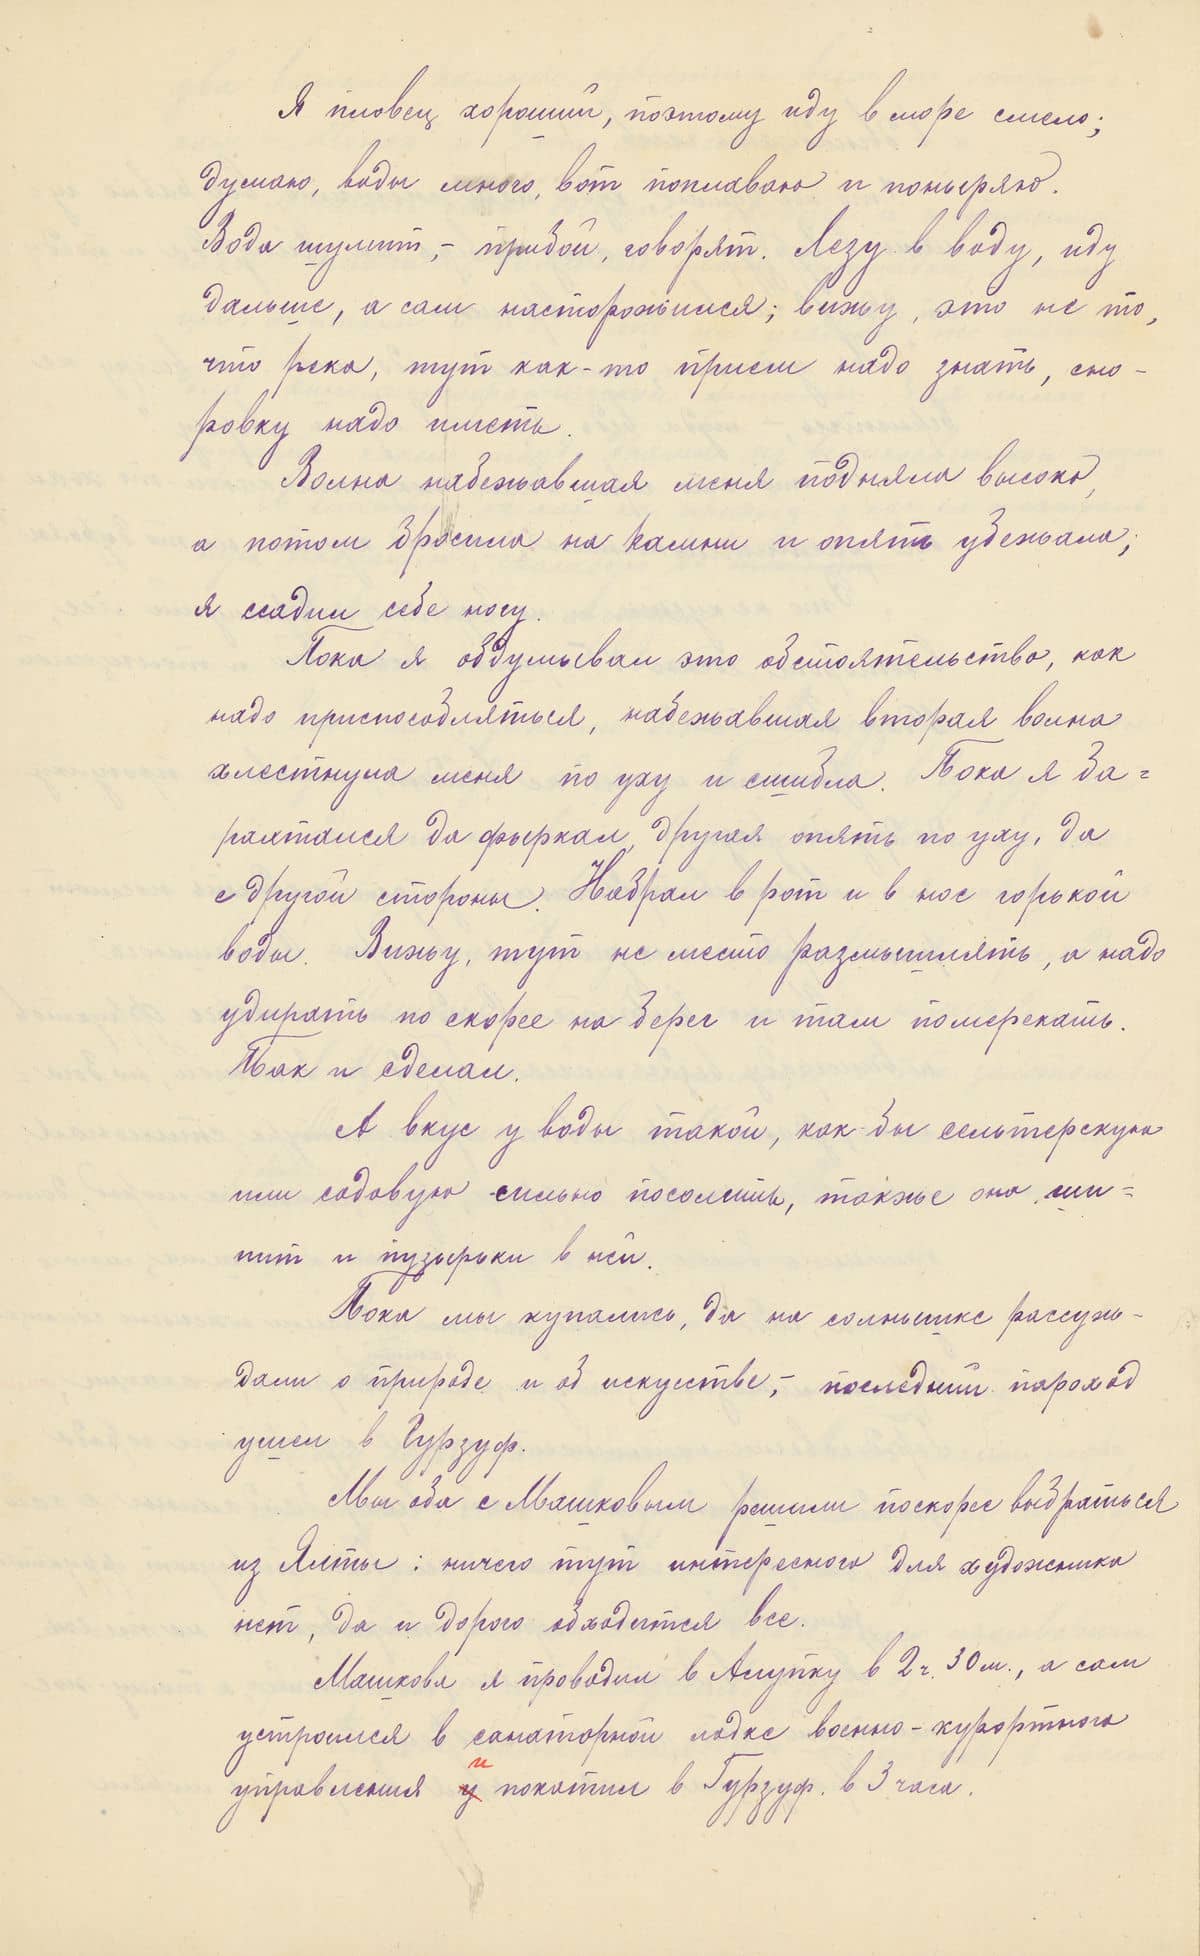 Я пловец хороший, поэтому иду в море смело;
думаю, воды много, вот поплаваю и поныряю.
Вода шумит,- прибой, говорят. Лезу в воду, иду
дальше, а сам насторожился; вижу, это не то,
что река, тут как-то прием надо знать, сно-
ровку надо иметь.
Волна набежавшая меня подняла высоко,
а потом бросила на камни и опять убежала;
я ссадил себе ногу.
Пока я обдумывал это обстоятельство, как
надо приспособляться, набежавшая вторая волна
хлестнула меня по уху и сшибла. Пока я ба=
рахтался да фыркал, другая опять по уху, да
с другой стороны. Набрал в рот и в нос горькой
воды. Вижу, тут не место размышлять, а надо
удирать по скорее на берег и там померекать.
Так и сделал.
А вкус у воды такой, как-бы сельтерскую
или содовую сильно посолить, также она ши=
пит и пузырьки в ней.
Пока мы купались, да на солнышке рассуж-
дали о природе и об искусстве,- последний пароход
ушел в Гурзуф.
Мы оба с Машковым решили поскорее выбраться
из Ялты: ничего тут интересного для художника
нет, да и дорого обходится все.
Машкова я проводил в Алупку в 2 ч. 30 м., а сам
устроился в санаторной лодке военно-курортного
управления и покатил в Гурзуф. в 3 часа.